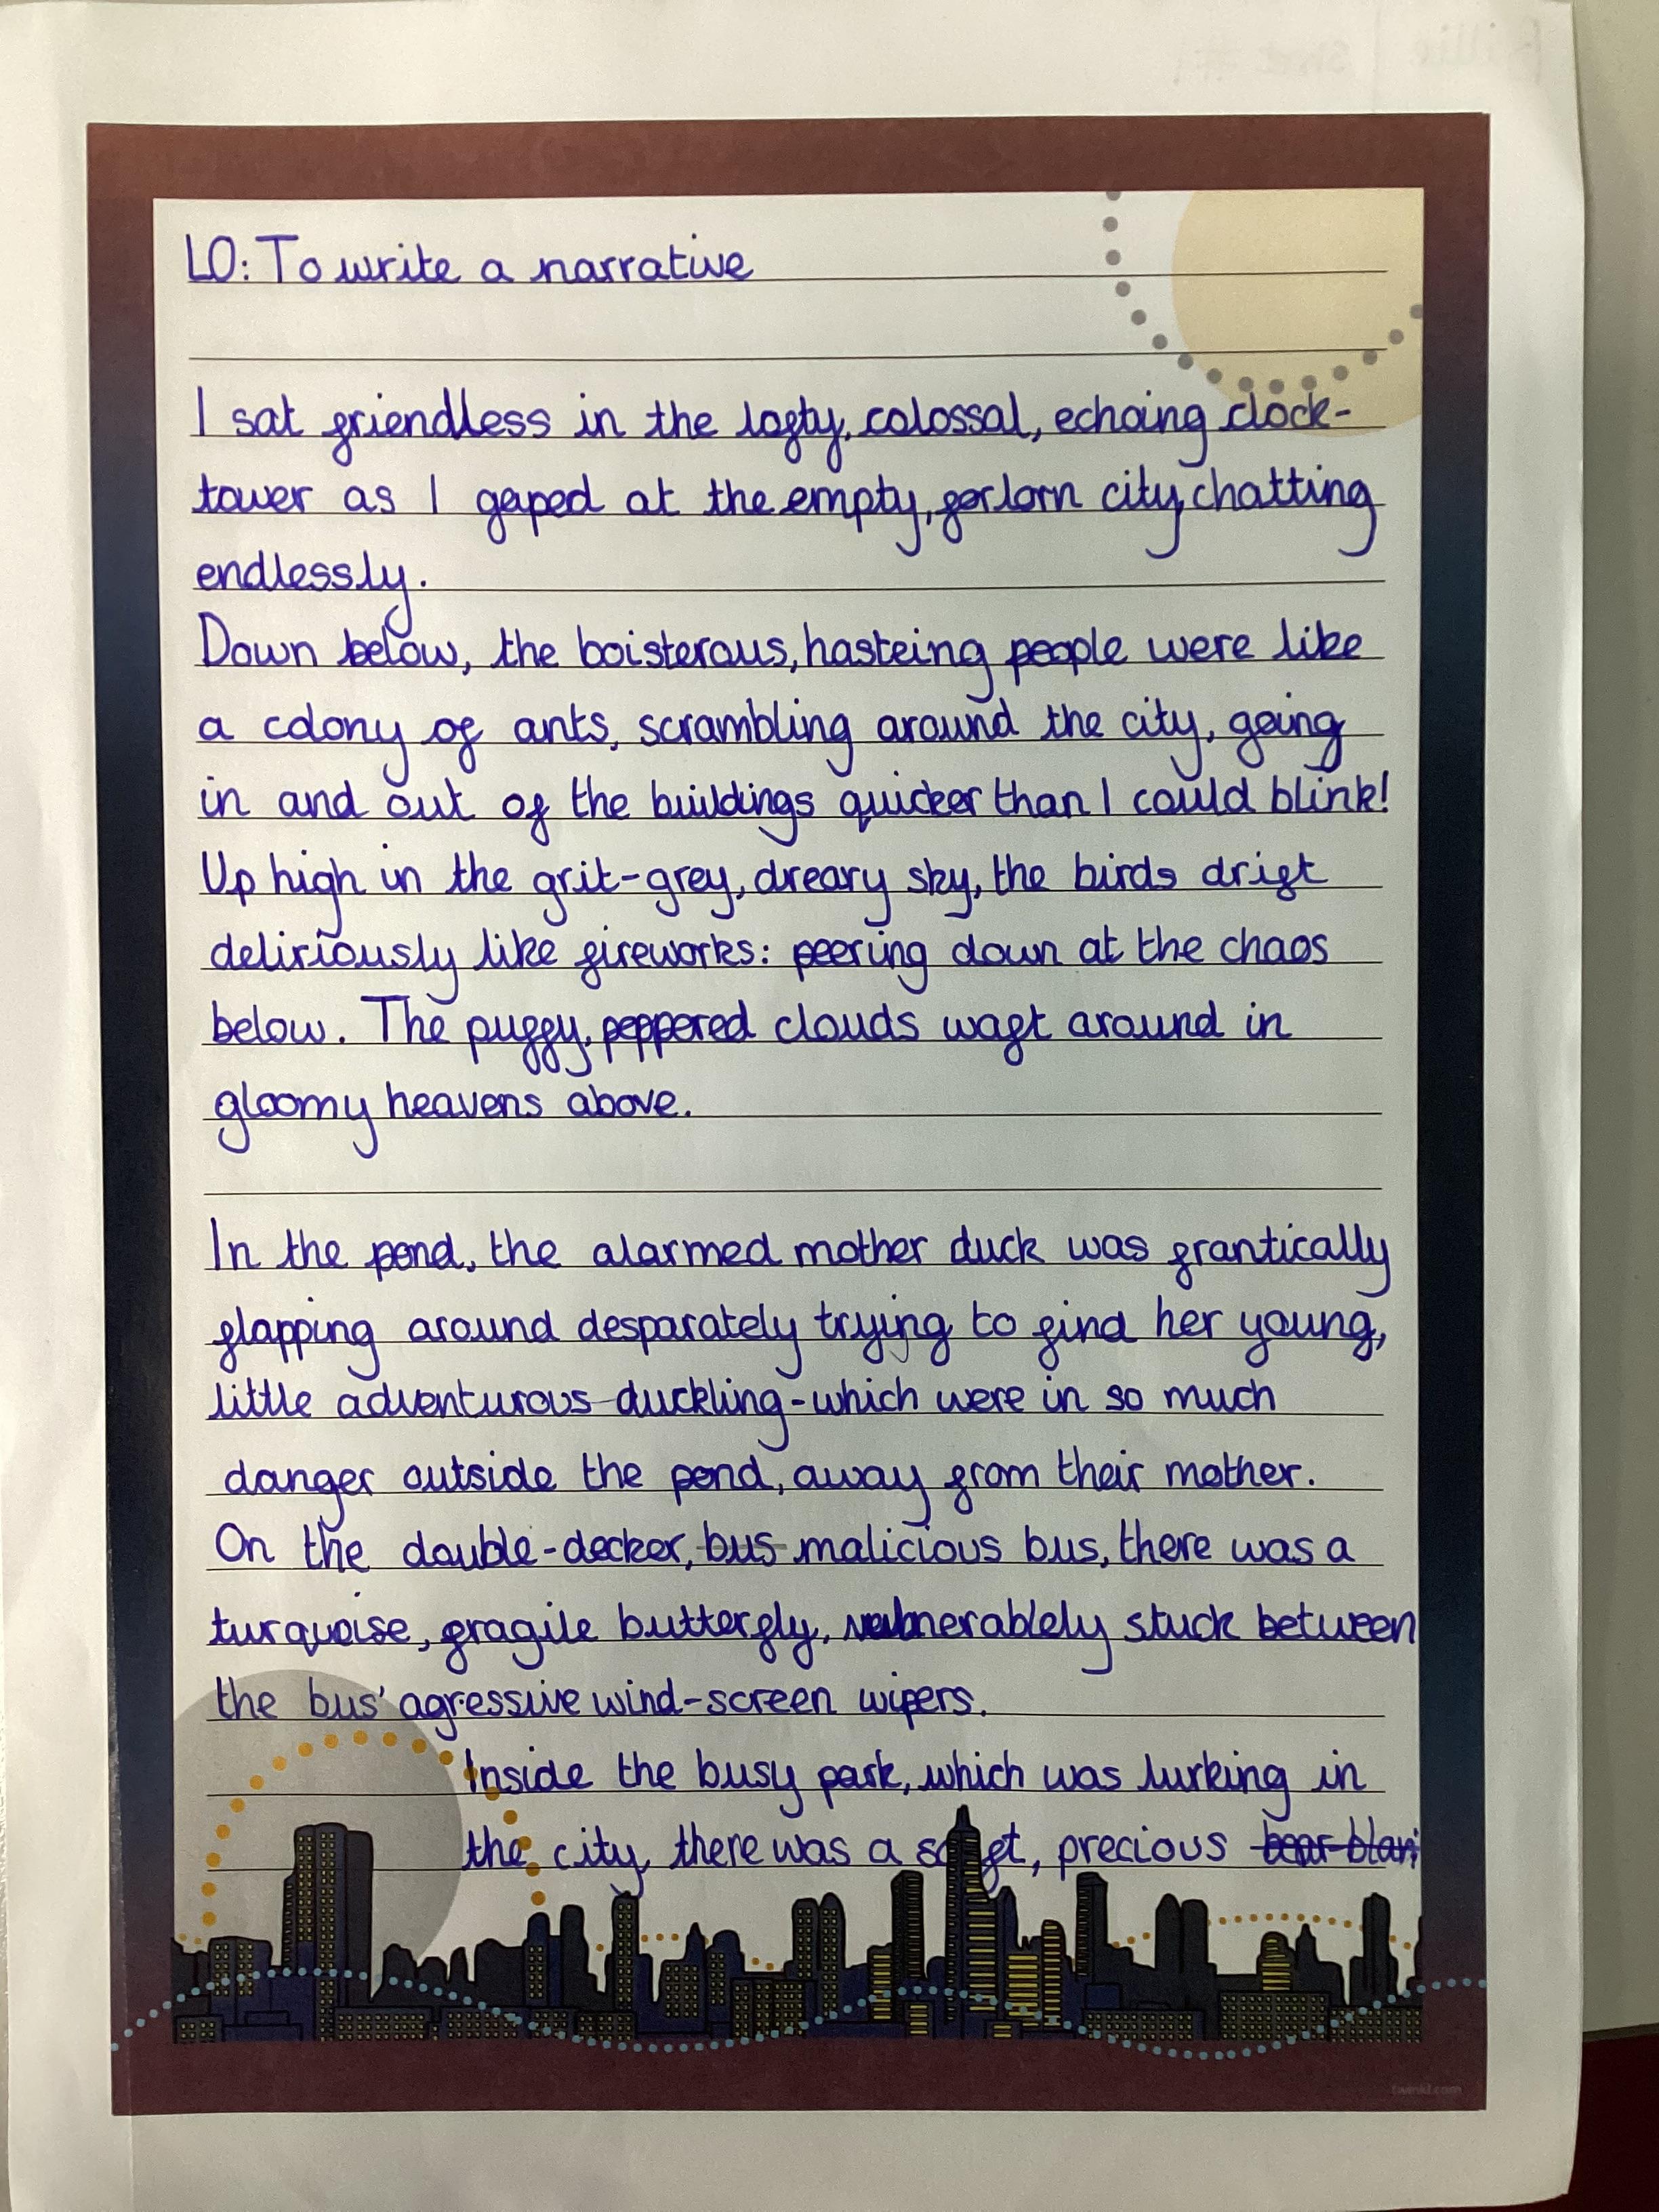 LO: To write a narrative
I sat friendless in the lofty, colossal, echoing clock-
tower as I gaped at the empty, forlorn city, chatting
endlessly.
Down below, the boisterous, hasteing people were like
a colony of ants, scrambling around the city, going
in and out of the buildings quicker than I could blink!
Up high in the grit-grey, dreary sky, the birds drift
deliriously like fireworks: peering down at the chaos
below. The puffy, peppered clouds waft around in
gloomy heavens above.
In the pond, the alarmed mother duck was frantically
flapping around desparately trying to find her young,
little adventurous duckling-which were in so much
danger outside the pond, away from their mother.
On the double-decker, bus malicious bus, there was a
turquoise, fragile butterfly, vulnerablely stuck between
the bus' agressive wind-screen wipers.
Inside the busy park, which was lurking in
the city, there was a precious
twinkl.com